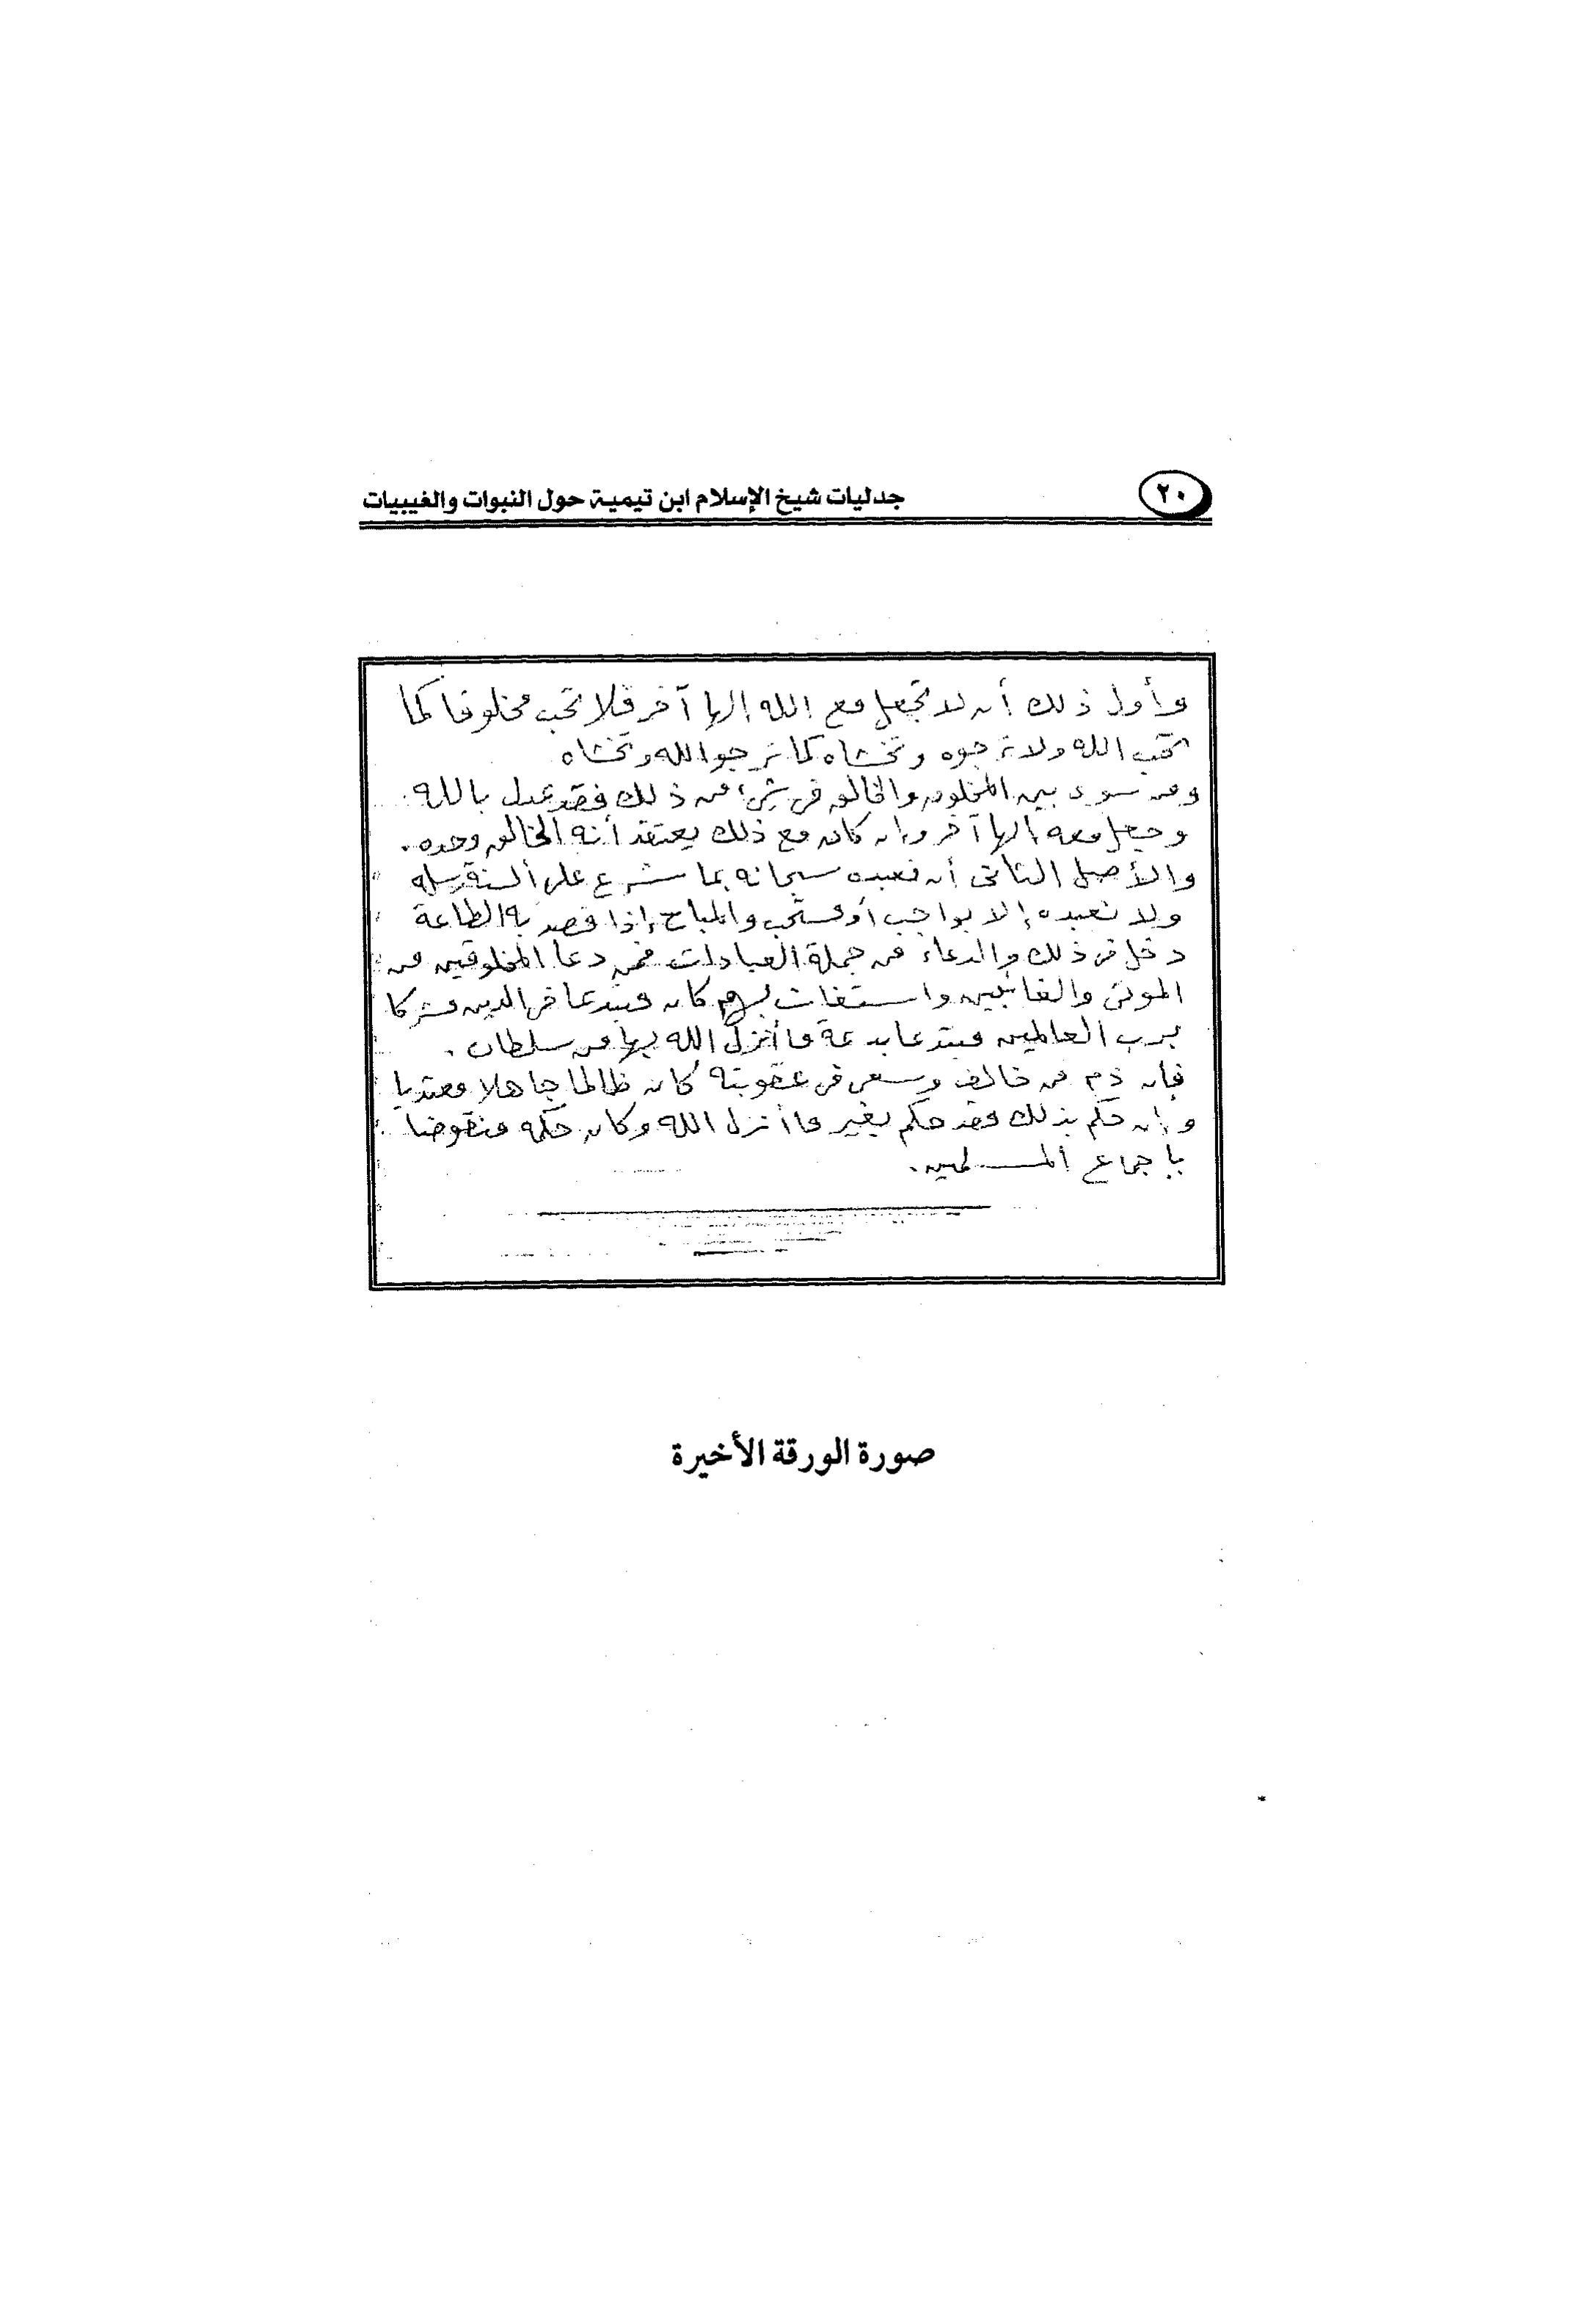 ٢٠
جدليات شيخ الإسلام ابن تيمية حول النبوات والغيبيات
وأول ذلك أن لا تجعل مع الله إلها آخر فلا تحب مخلوقا كما
تحب الله ولا ترجوه وتخشاه كما ترجو الله وتخشاه
ومن سوى بين المخلوق والخالق في شيء من ذلك فقد عدل بالله
وجعل معه إلها آخر وإن كان مع ذلك يعتقد أنه الخالق وحده.
والأصل الثاني أن نعبده سبحانه بما شرع على ألسنة رسله
ولا نعبده إلا بواجب أو مستحب والمباح إذا قصد به الطاعة
دخل في ذلك والدعاء من جملة العبادات فمن دعا المخلوقين من
الموتى والغائبين واستغاث بهم كان مبتدعا في الدين مشركا
برب العالمين مبتدعا بدعة ما أنزل الله بها من سلطان.
فإن ذم من خالف وسعى في عقوبته كان ظالما جاهلا معتديا
وإن حكم بذلك فقد حكم بغير ما أنزل الله وكان حكمه منقوضا
بإجماع المسلمين.
صورة الورقة الأخيرة